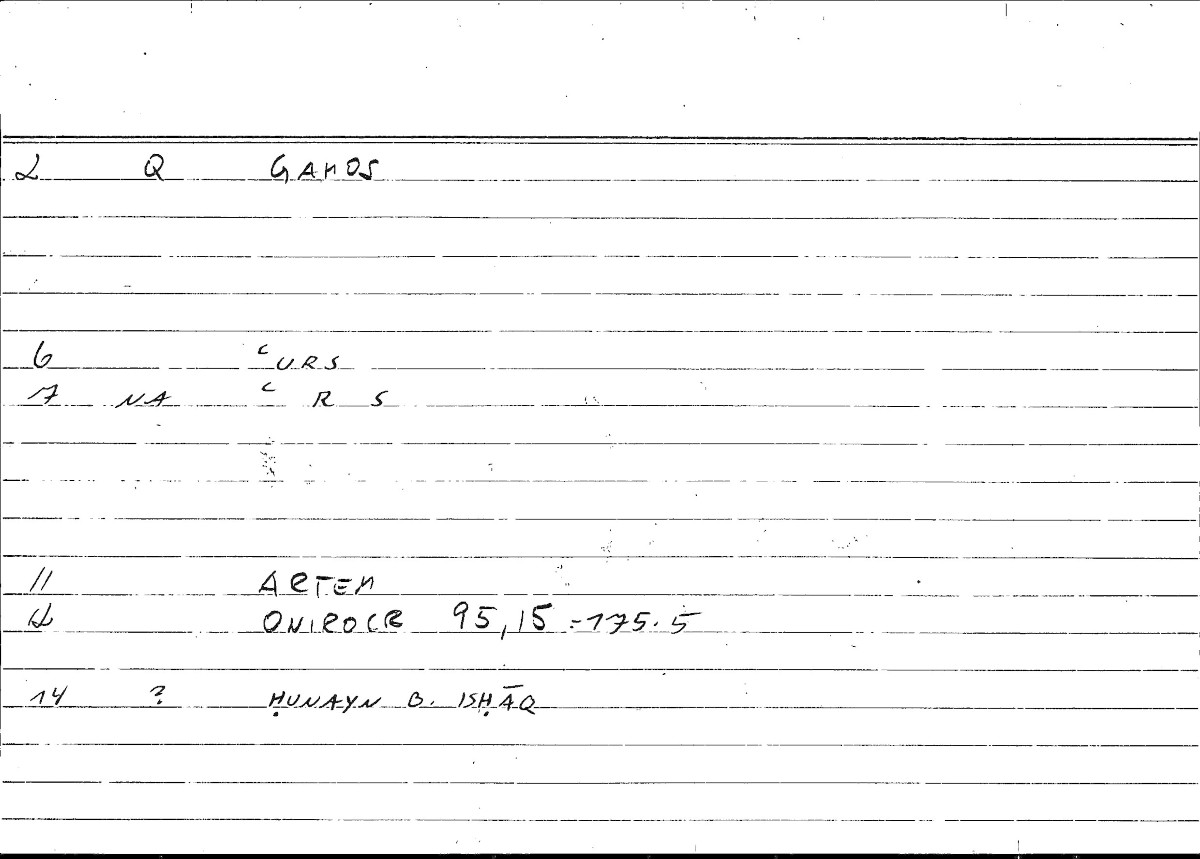 2 Q GAMOS
6 ʿURS
7 NA ʿ R S
11 ARTEM
12 ONIROCR 95,15 = 175.5
14 ? ḤUNAYN B. ISḤĀQ